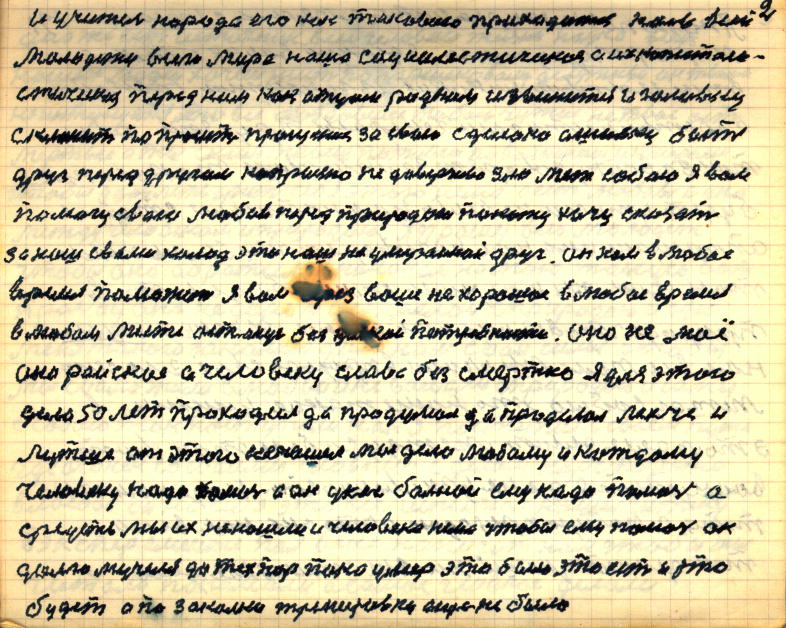 2
и учител народа его как такового приходится
молодежи всего мира наша социалестическая а их
перед ним как отцом родным извинится и головку
склонит попросит прощения за свою сделано ошибку быть
друг перед другом напрасно не доверяю зло меж собою я вам
помогу свою любов перед природою покажу хочу сказать
за наш свами холод это наш неумираемой друг. он нам в любое
время поможет я вам через ваше не хорошое в любое время
в любом месте останус без всякой потребности. оно не моё
оно райское а человеку слава без смертно я для этого
дела 50 лет проходил да продумал да проделал легче и
лутше от этого не нашел мое дело любому и каждому
человеку надо помоч а он уже болной ему надо помоч а
средств мы их не нашли и человека нема чтобы ему помоч он
долго мучился до тех пор пока умер это было это ест и это
будет а по закалки тренировки еще не было